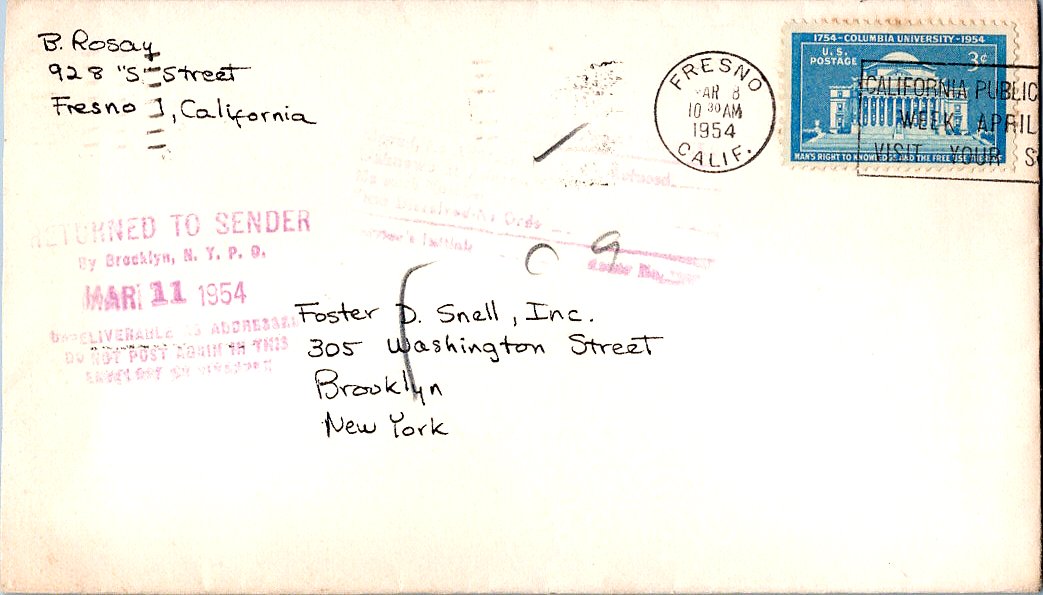 B. Rosay
928 "S" Street
Fresno 1, California
FRESNO
AR 8
10 30 AM
1954
CALIF.
1754-COLUMBIA UNIVERSITY-1954
U.S.
POSTAGE
3¢
MAN'S RIGHT TO KNOWLEDGE AND THE FREE USE THEREOF
CALIFORNIA PUBLIC
WEEK APRIL
VISIT YOUR S
Refused
RETURNED TO SENDER
By Brooklyn, N. Y. P. O.
MAR 11 1954
UNDELIVERABLE AS ADDRESSED
DO NOT POST AGAIN IN THIS
ENVELOPE OR WRAPPER
09
Foster D. Snell, Inc.
305 Washington Street
Brooklyn
New York